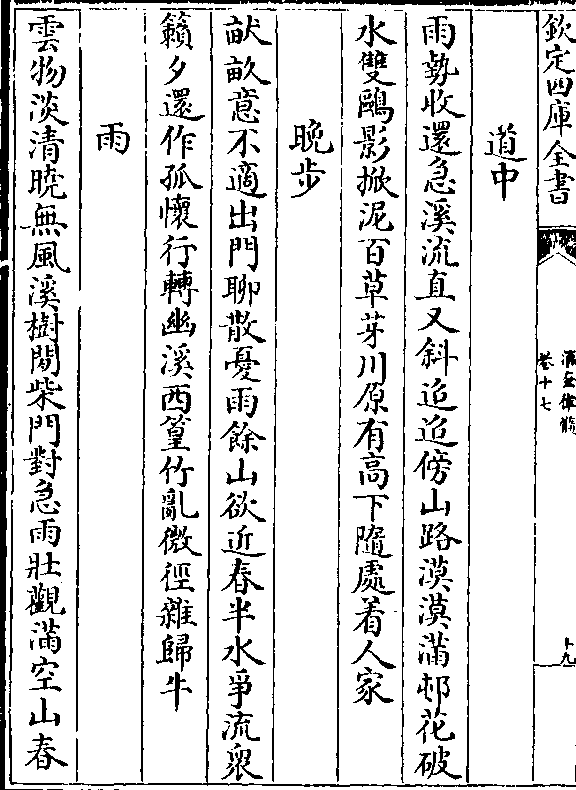 欽定四庫全書
卷十七
道中
雨勢收還急溪流直又斜迢迢傍山路漠漠滿邨花破
水雙鷗影掀泥百草芽川原有高下隨處着人家
晚步
畎畝意不適出門聊散憂雨餘山欲近春半水爭流衆
籟夕還作孤懷行轉幽溪西篁竹亂微徑雜歸牛
雨
雲物淡清曉無風溪樹閒柴門對急雨壯觀滿空山春